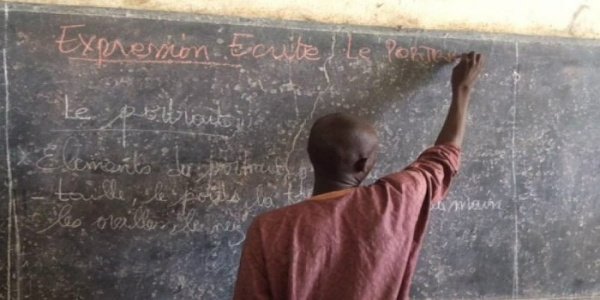 Expression Ecrite Le PORTRAI
Le portrait
Elements du portrait
- taille, le poids, la main
les oreilles, le nez